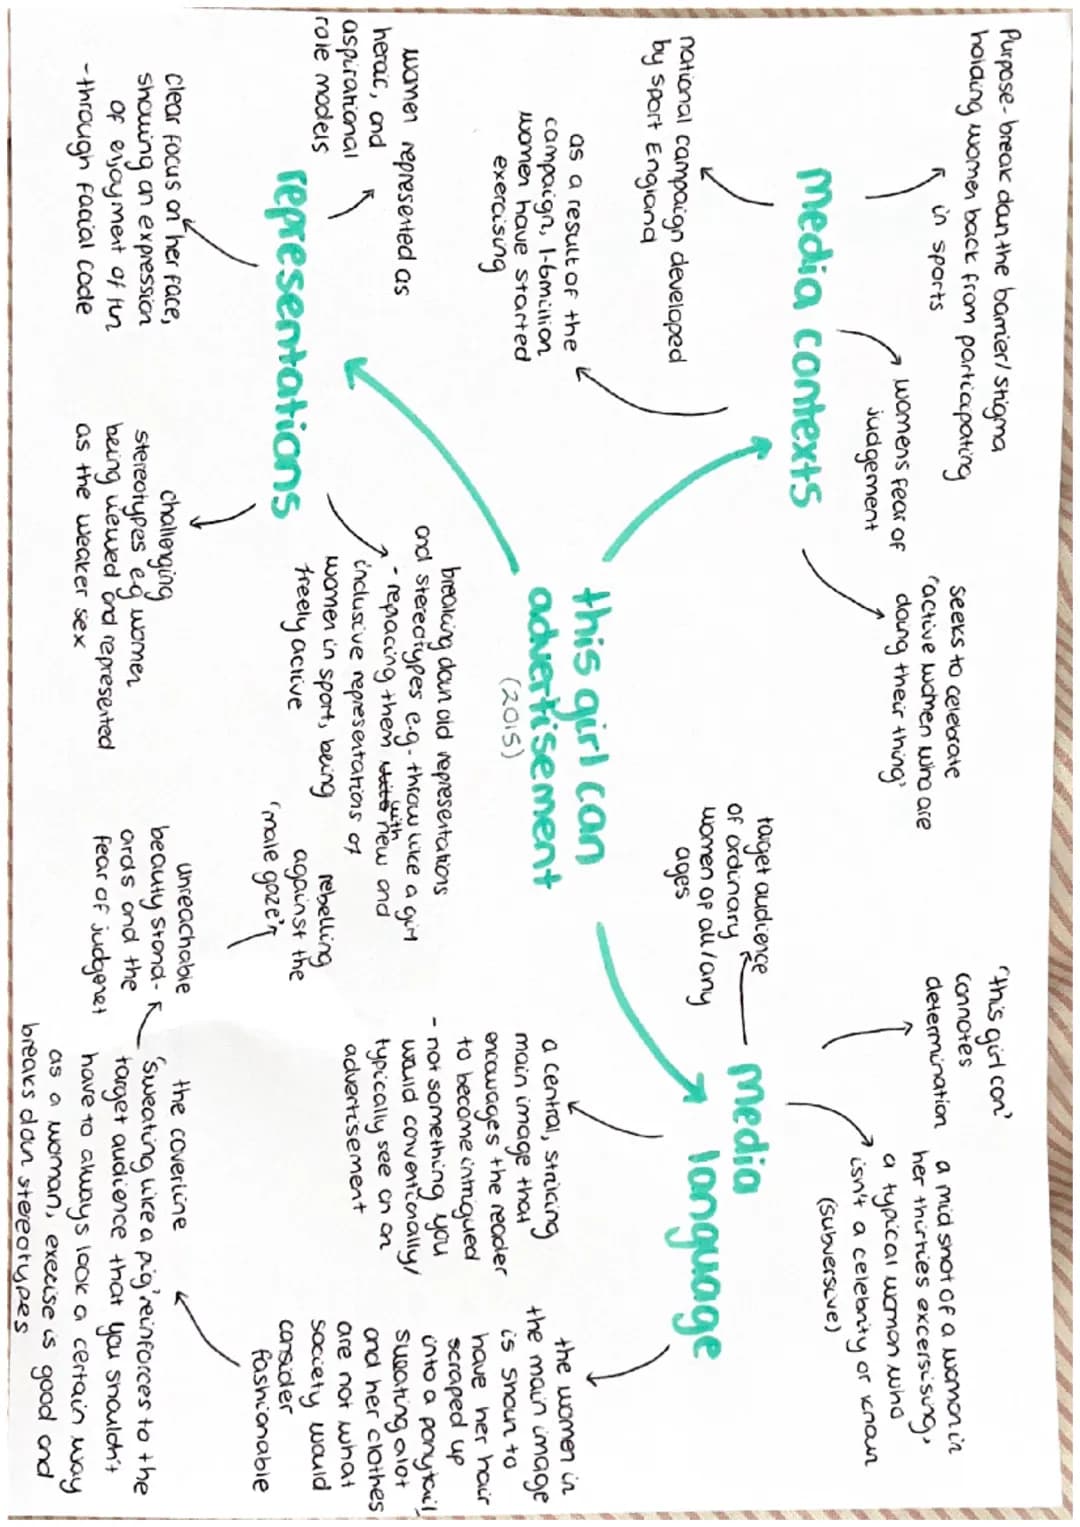 this girl can
advertisement
(2015)
media contexts
Purpose - break down the barrier/stigma
holding women back from particapating
in sports
womens fear of
judgement
seeks to celebrate
'active women who are
doing their thing'
national campaign developed
by sport England
as a result of the
campaign, 1.6million
women have started
exercising
media
language
'this girl can'
connotes
determination
a mid shot of a woman in
her thirties excersising,
a typical woman who
isn't a celebrity or known
(subversive)
target audience
of ordinary
women of all/any
ages
a central, striking
main image that
encourages the reader
to become intrigued
- not something you
would conventionally/
typically see on an
advertisement
the women in
the main image
is shown to
have her hair
scraped up
into a ponytail,
sweating alot
and her clothes
are not what
society would
consider
fashionable
the coverline
'sweating like a pig' reinforces to the
target audience that you shouldn't
have to always look a certain way
as a woman, execise is good and
breaks down stereotypes
unreachable
beauty stand-
ards and the
fear of judgenet
representations
women represented as
heroic, and
aspirational
role models
clear focus on her face,
showing an expression
of enjoyment of fun
- through facial code
challenging
stereotypes eg women
being viewed and represented
as the weaker sex
breaking down old representations
and stereotypes e.g. - throw like a girl
- replacing them with new and
inclusive representations of
women in sport, being
freely active
rebelling
against the
'male gaze'